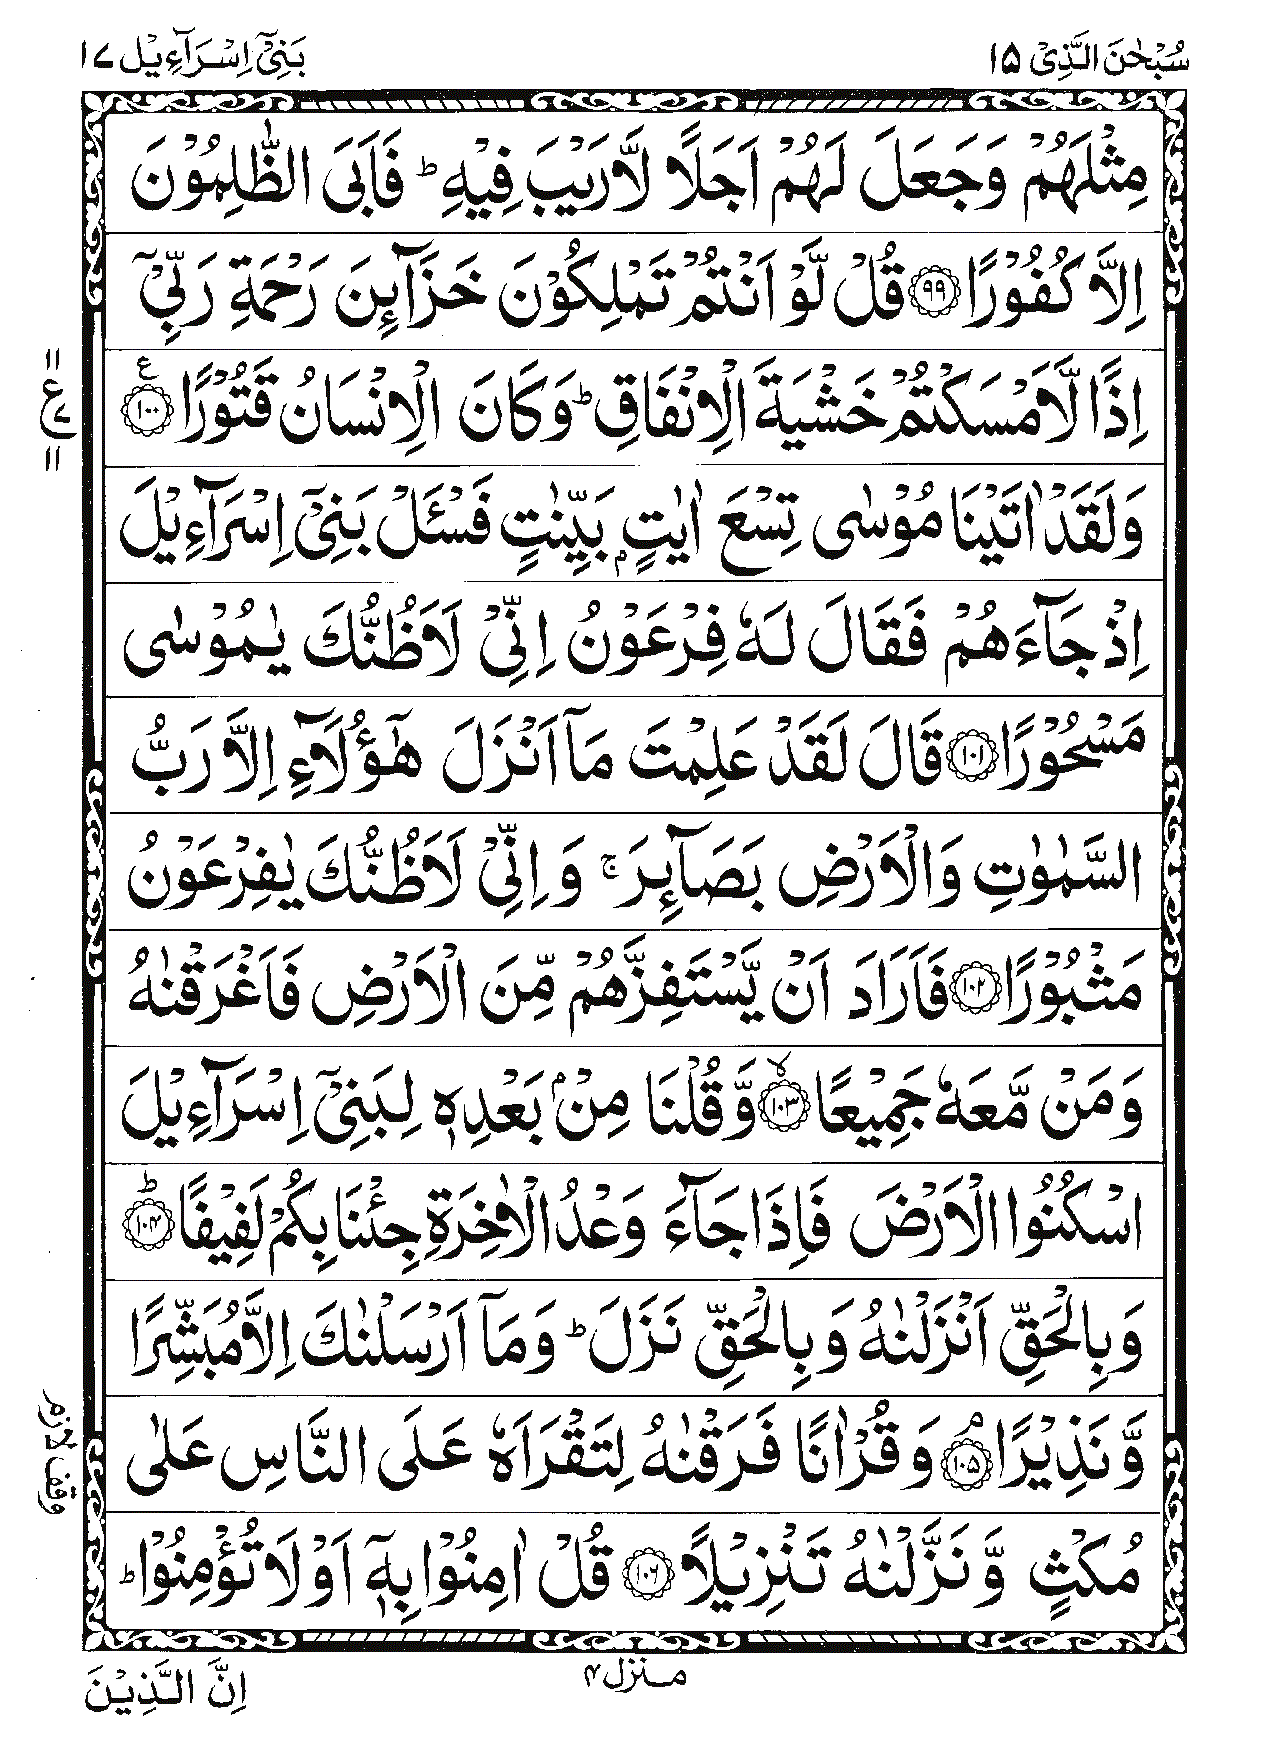 سُبْحٰنَ الَّذِیْ ۱۵
بَنِیْٓ اِسْرَآءِیْل ۱۷
مِثْلَهُمْ وَجَعَلَ لَهُمْ اَجَلًا لَّارَیْبَ فِیْهِ ؕ فَاَبَی الظّٰلِمُوْنَ
اِلَّا كُفُوْرًا ۹۹ قُلْ لَّوْ اَنْتُمْ تَمْلِكُوْنَ خَزَآئِنَ رَحْمَةِ رَبِّیْٓ
اِذًا لَّاَمْسَكْتُمْ خَشْیَةَ الْاِنْفَاقِ ؕ وَكَانَ الْاِنْسَانُ قَتُوْرًا ۱۰۰ ع
۱۱ ع ۷ ۱۱
وَلَقَدْ اٰتَیْنَا مُوْسٰی تِسْعَ اٰیٰتٍۭ بَیِّنٰتٍ فَسْـَٔلْ بَنِیْٓ اِسْرَآءِیْلَ
اِذْ جَآءَهُمْ فَقَالَ لَهٗ فِرْعَوْنُ اِنِّیْ لَاَظُنُّكَ یٰمُوْسٰی
مَسْحُوْرًا ۱۰۱ قَالَ لَقَدْ عَلِمْتَ مَاۤ اَنْزَلَ هٰۤؤُلَآءِ اِلَّا رَبُّ
السَّمٰوٰتِ وَالْاَرْضِ بَصَآئِرَ ۚ وَ اِنِّیْ لَاَظُنُّكَ یٰفِرْعَوْنُ
مَثْبُوْرًا ۱۰۲ فَاَرَادَ اَنْ یَّسْتَفِزَّهُمْ مِّنَ الْاَرْضِ فَاَغْرَقْنٰهُ
وَمَنْ مَّعَهٗ جَمِیْعًا ۱۰۳ۙ وَّ قُلْنَا مِنْۢ بَعْدِهٖ لِبَنِیْٓ اِسْرَآءِیْلَ
اسْكُنُوا الْاَرْضَ فَاِذَا جَآءَ وَعْدُ الْاٰخِرَةِ جِئْنَا بِكُمْ لَفِیْفًا ۱۰۴ؕ
وَبِالْحَقِّ اَنْزَلْنٰهُ وَبِالْحَقِّ نَزَلَ ؕ وَمَاۤ اَرْسَلْنٰكَ اِلَّا مُبَشِّرًا
وَّ نَذِیْرًا ۱۰۵ۘ وَ قُرْاٰنًا فَرَقْنٰهُ لِتَقْرَاَهٗ عَلَی النَّاسِ عَلٰی
وقف لازم
مُكْثٍ وَّ نَزَّلْنٰهُ تَنْزِیْلًا ۱۰۶ قُلْ اٰمِنُوْا بِهٖۤ اَوْ لَا تُؤْمِنُوْا ؕ
منزل ۴
اِنَّ الَّذِیْنَ